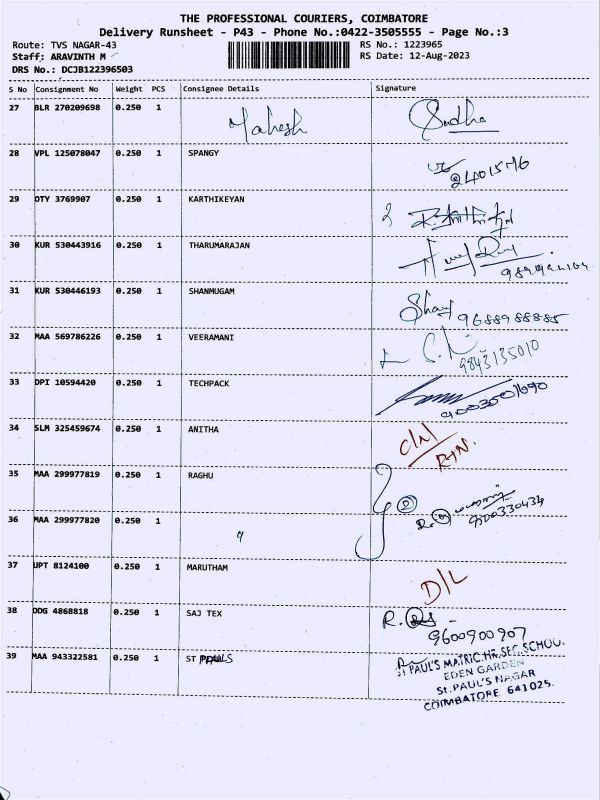 THE PROFESSIONAL COURIERS, COIMBATORE
Delivery Runsheet - P43 - Phone No.:0422-3505555 - Page No.:3
Route: TVS NAGAR-43 RS No.: 1223965
Staff: ARAVINTH M RS Date: 12-Aug-2023
DRS No.: DCJB122396503
S No Consignment No Weight PCS Consignee Details Signature
27 BLR 270209698 0.250 1 Mahesh Sudha
28 VPL 125078047 0.250 1 SPANGY
29 OTY 3769907 0.250 1 KARTHIKEYAN
30 KUR 530443916 0.250 1 THARUMARAJAN
31 KUR 530446193 0.250 1 SHANMUGAM Shan 9688988885
32 MAA 569786226 0.250 1 VEERAMANI 9843135010
33 DPI 10594420 0.250 1 TECHPACK 9003501690
34 SLM 325459674 0.250 1 ANITHA C/N
RTN.
35 MAA 299977819 0.250 1 RAGHU 2
36 MAA 299977820 0.250 1 "
37 UPT 8124100 0.250 1 MARUTHAM D/L
38 DDG 4868818 0.250 1 SAJ TEX R.
9600900907
39 MAA 943322581 0.250 1 ST PAULS St PAUL'S MATRIC.HR.SEC.SCHOOL
EDEN GARDEN
St.PAUL'S NAGAR
COIMBATORE 641025.